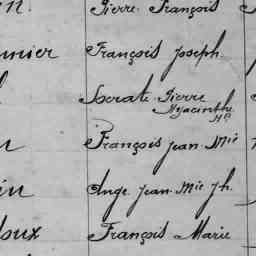 Pierre François
François Joseph
Socrate Pierre
Hyacinthe
François Jean Mie
Ange Jean Mie Jh.
François Marie